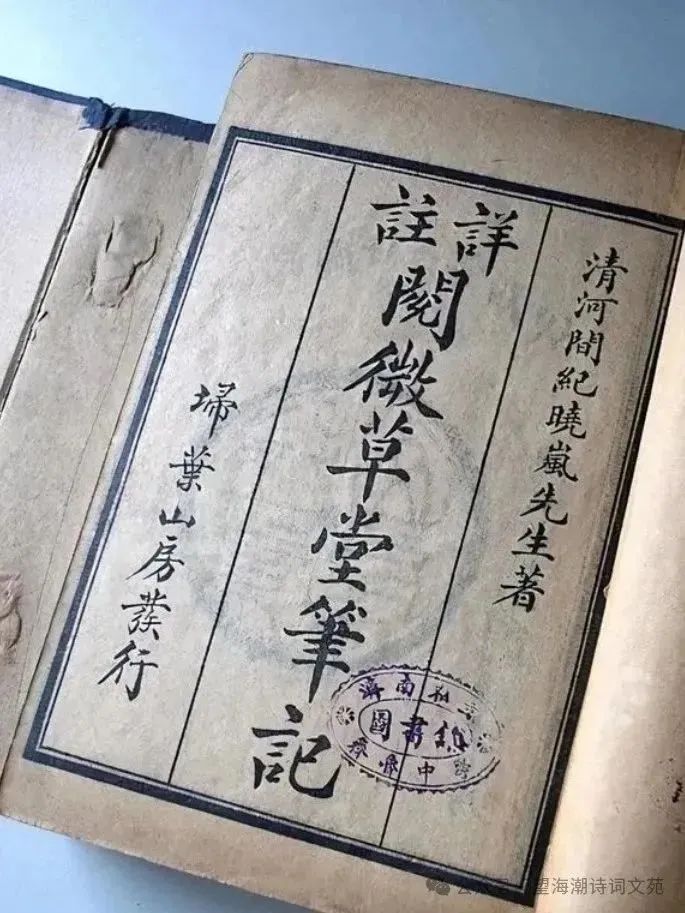 清河間紀曉嵐先生著
詳註
閱微草堂筆記
掃葉山房發行
濟南
圖書
望海潮诗词文苑